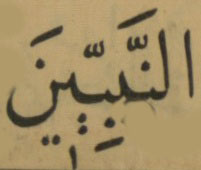 النَّبِيِّينَ